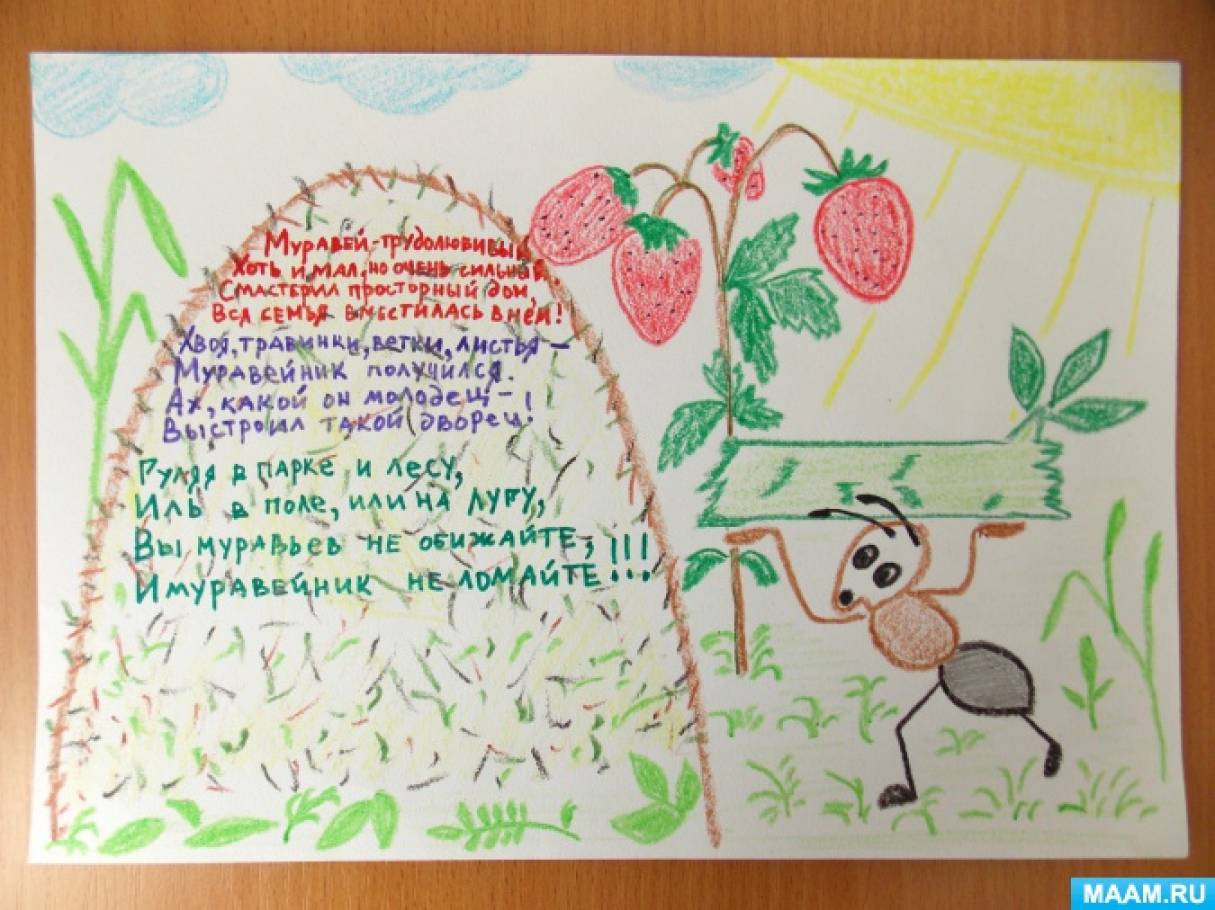 Муравей-трудолюбивый,
Хоть и мал, но очень сильный.
Смастерил просторный дом,
Вся семья вместилась в нём!
Хвоя, травинки, ветки, листья –
Муравейник получился.
Ах, какой он молодец –
Выстроил такой дворец!
Гуляя в парке и лесу,
Иль в поле, или на лугу,
Вы муравьев не обижайте,
И муравейник не ломайте!!!
MAAM.RU